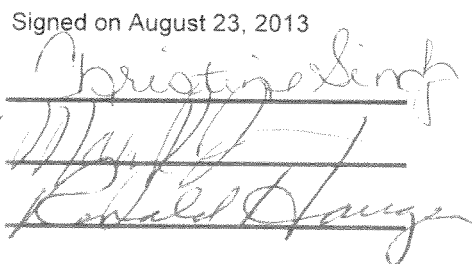 Signed on August 23, 2013
Christine Singh
Ronald Haugen